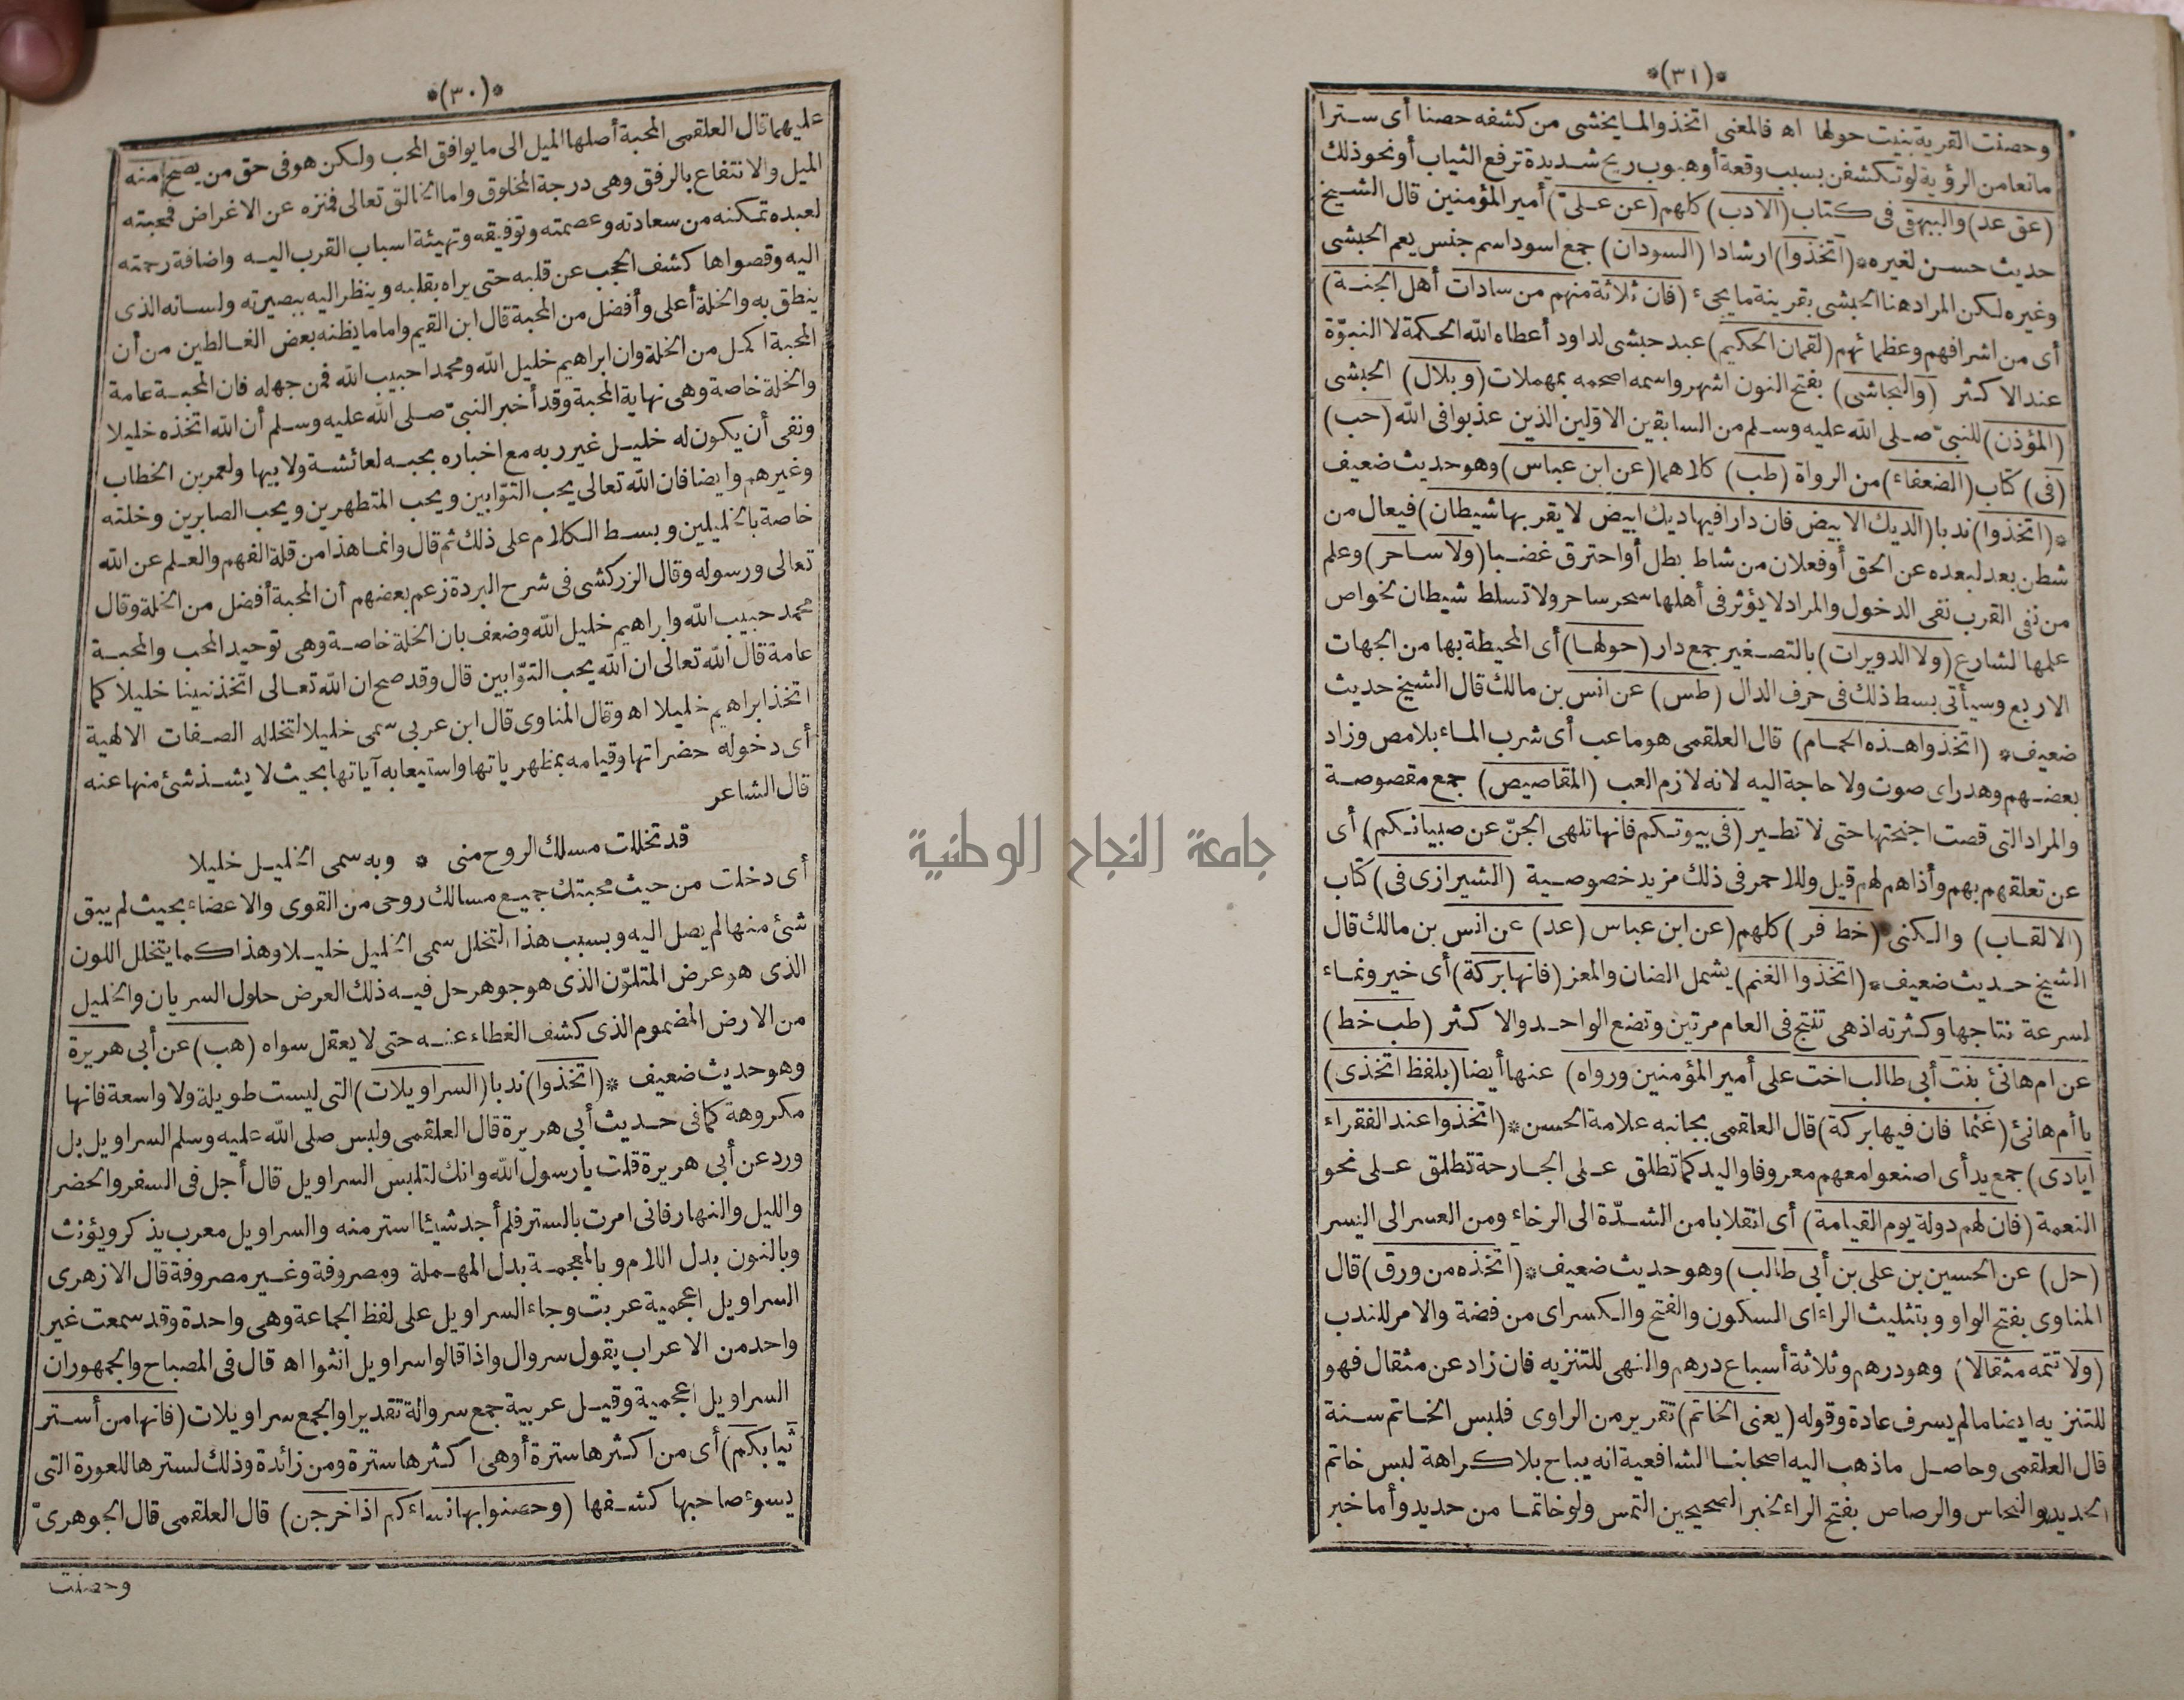 *(٣٠)*
عليهما قال العلقمى المحبة أصلها الميل الى ما يوافق المحب ولكن هو فى حق من يصح منه
الميل والانتفاع بالرفق وهى درجة المخلوق واما الخالق تعالى فمنزه عن الاغراض فمحبته
لعبده تمكنه من سعادته وعصمته وتوفيقه وتهيئة اسباب القرب اليه واضافة رحمته
اليه وقصواها كشف الحجب عن قلبه حتى يراه بقلبه وينظر اليه ببصيرته ولسانه الذى
ينطق به والخلة أعلى وأفضل من المحبة قال ابن القيم واما ما يظنه بعض الغالطين من أن
المحبة اكمل من الخلة وان ابراهيم خليل الله ومحمدا حبيب الله فمن جهله فان المحبة عامة
والخلة خاصة وهى نهاية المحبة وقد أخبر النبى صلى الله عليه وسلم أن الله اتخذه خليلا
ونفى أن يكون له خليل غير ربه مع اخباره بحبه لعائشة ولابيها ولعمر بن الخطاب
وغيرهم وايضا فان الله تعالى يحب التوّابين ويحب المتطهرين ويحب الصابرين وخلته
خاصة بالخليلين وبسط الكلام على ذلك ثم قال وانما هذا من قلة الفهم والعلم عن الله
تعالى ورسوله وقال الزركشى فى شرح البردة زعم بعضهم أن المحبة أفضل من الخلة وقال
محمد حبيب الله وابراهيم خليل الله وضعف بان الخلة خاصة وهى توحيد المحب والمحبة
عامة قال الله تعالى ان الله يحب التوّابين قال وقد صح ان الله تعالى اتخذ نبينا خليلا كما
اتخذ ابراهيم خليلا اه وقال المناوى قال ابن عربى سمى خليلا لتخلله الصفات الالهية
أى دخوله حضراتها وقيامه بمظهرياتها واستيعابه آياتها بحيث لا يشذ شئ منها عنه
قال الشاعر
قد تخللت مسلك الروح منى * وبه سمى الخليل خليلا
أى دخلت من حيث محبتك جميع مسالك روحى من القوى والاعضاء بحيث لم يبق
شئ منها لم يصل اليه وبسبب هذا التخلل سمى الخليل خليلا وهذا كما يتخلل اللون
الذى هو عرض المتلوّن الذى هو جوهر حل فيه ذلك العرض حلول السريان والخليل
من الارض المضموم الذى كشف الغطاء عنه حتى لا يعقل سواه (هب) عن أبى هريرة
وهو حديث ضعيف *(اتخذوا) ندبا (السراويلات) التى ليست طويلة ولا واسعة فانها
مكروهة كما فى حديث أبى هريرة قال العلقمى ولبس صلى الله عليه وسلم السراويل بل
ورد عن أبى هريرة قلت يا رسول الله وانك لتلبس السراويل قال أجل فى السفر والحضر
والليل والنهار فانى امرت بالستر فلم أجد شيئا استر منه والسراويل معرب يذكر ويؤنث
وبالنون بدل اللام وبالمعجمة بدل المهملة ومصروفة وغير مصروفة قال الازهرى
السراويل اعجمية عربت وجاء السراويل على لفظ الجماعة وهى واحدة وقد سمعت غير
واحد من الاعراب يقول سروال واذا قالوا سراويل انثوا اه قال فى المصباح والجمهور ان
السراويل اعجمية وقيل عربية جمع سروالة تقديرا والجمع سراويلات (فانها من أستر
ثيابكم) أى من اكثرها سترة أو هى اكثرها سترة ومن زائدة وذلك لسترها للعورة التى
يسوء صاحبها كشفها (وحصنوا بها نساءكم اذا خرجن) قال العلقمى قال الجوهرىّ
وحصنت
*(٣١)*
وحصنت القرية بنيت حولها اه فالمعنى اتخذوا لما يخشى من كشفه حصنا أى سترا
مانعا من الرؤية لو تكشفن بسبب وقعة أو هبوب ريح شديدة ترفع الثياب أو نحو ذلك
(عق عد) والبيهقى فى كتاب (الادب) كلهم (عن علىّ) أمير المؤمنين قال الشيخ
حديث حسن لغيره *(اتخذوا) ارشادا (السودان) جمع اسود اسم جنس يعم الحبشى
وغيره لكن المراد هنا الحبشى بقرينة ما يجىء (فان ثلاثة منهم من سادات أهل الجنة)
أى من اشرافهم وعظمائهم (لقمان الحكيم) عبد حبشى لداود أعطاه الله الحكمة لا النبوّة
عند الاكثر (والنجاشى) بفتح النون اشهر واسمه اصحمه بمهملات (وبلال) الحبشى
(المؤذن) للنبىّ صلى الله عليه وسلم من السابقين الاوّلين الذين عذبوا فى الله (حب)
(فى) كتاب (الضعفاء) من الرواة (طب) كلاهما (عن ابن عباس) وهو حديث ضعيف
*(اتخذوا) ندبا (الديك الابيض فان دارا فيها ديك ابيض لا يقربها شيطان) فيعال من
شطن بعد لبعده عن الحق أو فعلان من شاط بطل أو احترق غضبا (ولا ساحر) وعلم
من نفى القرب نفى الدخول والمراد لا يؤثر فى أهلها سحر ساحر ولا تسلط شيطان لخواص
علمها الشارع (ولا الدويرات) بالتصغير جمع دار (حولها) أى المحيطة بها من الجهات
الاربع وسيأتى بسط ذلك فى حرف الدال (طس) عن انس بن مالك قال الشيخ حديث
ضعيف * (اتخذوا هذه الحمام) قال العلقمى هو ما عب أى شرب الماء بلا مص وزاد
بعضهم وهدر اى صوت ولا حاجة اليه لانه لازم العب (المقاصيص) جمع مقصوصة
والمراد التى قصت اجنحتها حتى لا تطير (فى بيوتكم فانها تلهى الجنّ عن صبيانكم) أى
عن تعلقهم بهم وأذاهم لهم قيل وللاحمر فى ذلك مزيد خصوصية (الشيرازى فى) كتاب
(الالقاب) والكنى (خط فر) كلهم (عن ابن عباس (عد) عن انس بن مالك قال
الشيخ حديث ضعيف *(اتخذوا الغنم) يشمل الضان والمعز (فانها بركة) أى خير ونماء
لسرعة نتاجها وكثرته اذهى تنتج فى العام مرتين وتضع الواحد والاكثر (طب خط)
عن ام هانئ بنت أبى طالب اخت على أمير المؤمنين ورواه) عنها أيضا (بلفظ اتخذى)
يا أم هانئ (غنما فان فيها بركة) قال العلقمى بجانبه علامة الحسن *(اتخذوا عند الفقراء
أيادى) جمع يد أى اصنعوا معهم معروفا واليد كما تطلق على الجارحة تطلق على نحو
النعمة (فان لهم دولة يوم القيامة) أى انقلابا من الشدّة الى الرخاء ومن العسر الى اليسر
(حل) عن الحسين بن على بن أبى طالب) وهو حديث ضعيف *(اتخذه من ورق) قال
المناوى بفتح الواو وبتثليث الراء اى السكون والفتح والكسر اى من فضة والامر للندب
(ولا تتمه مثقالا) وهو درهم وثلاثة أسباع درهم والنهى للتنزيه فان زاد عن مثقال فهو
للتنزيه ايضا ما لم يسرف عادة وقوله (يعنى الخاتم) تقرير من الراوى فلبس الخاتم سنة
قال العلقمى وحاصل ما ذهب اليه اصحابنا الشافعية انه يباح بلا كراهة لبس خاتم
الحديد والنحاس والرصاص بفتح الراء لخبر الصحيحين التمس ولو خاتما من حديد وأما خبر
جامعة النجاح الوطنية